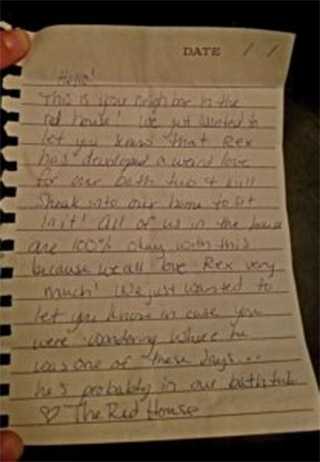 DATE / /
Hello!
This is your neighbor in the
red house! We just wanted to
let you know that Rex
has developed a weird love
for our bath tub & will
sneak into our home to sit
in it! All of us in the house
are 100% okay with this
because we all love Rex very
much! We just wanted to
let you know in case you
were wondering where he
was one of these days...
he's probably in our bathtub
♡ The Red House